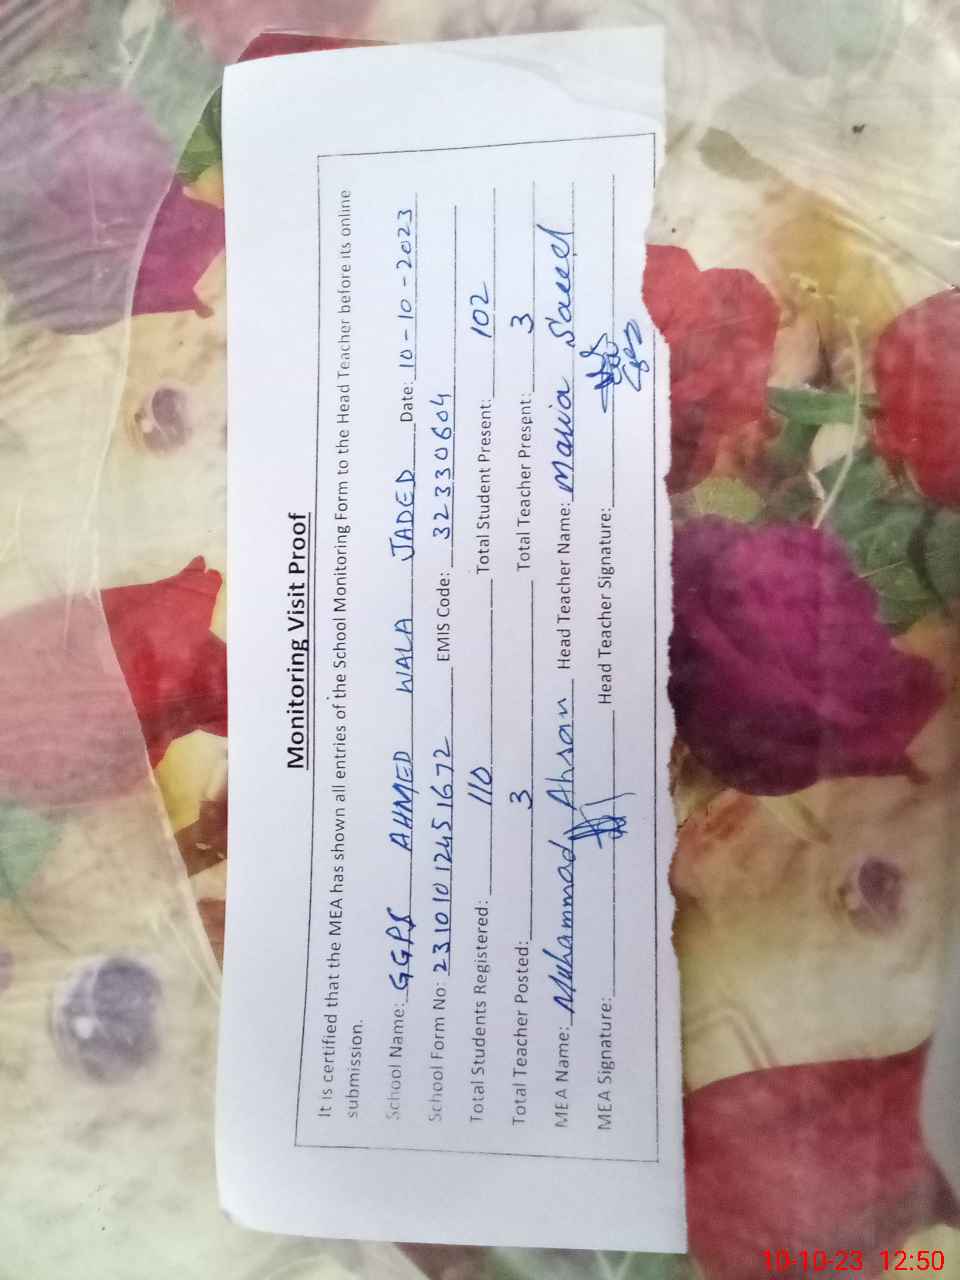 Monitoring Visit Proof
It is certified that the MEA has shown all entries of the School Monitoring Form to the Head Teacher before its online
submission.
School Name: GGPS AHMED WALA JADED Date: 10-10-2023
School Form No: 23101012451672 EMIS Code: 32330604
Total Students Registered: 110 Total Student Present: 102
Total Teacher Posted: 3 Total Teacher Present: 3
MEA Name: Muhammad Ahsan Head Teacher Name: Maria Saeed
MEA Signature: Head Teacher Signature:
10-10-23 12:50